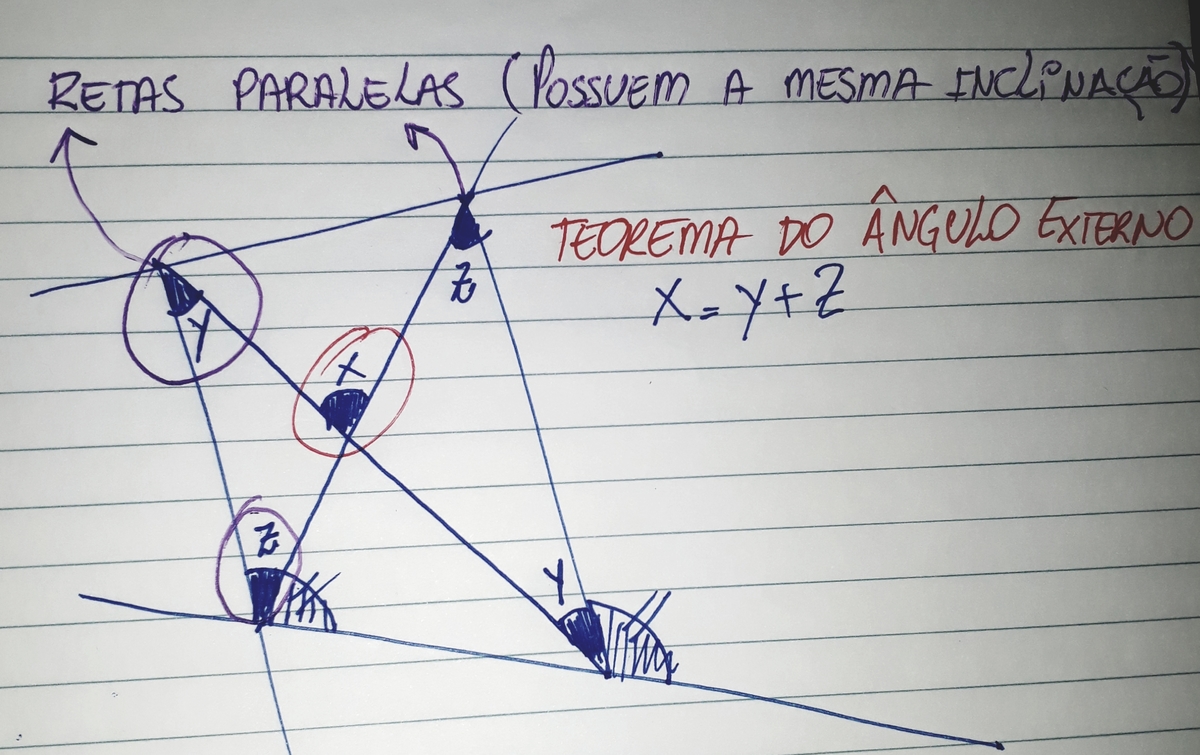 RETAS PARALELAS (POSSUEM A MESMA INCLINAÇÃO)
TEOREMA DO ÂNGULO EXTERNO
X = Y + Z
Z
Y
X
Z
Y